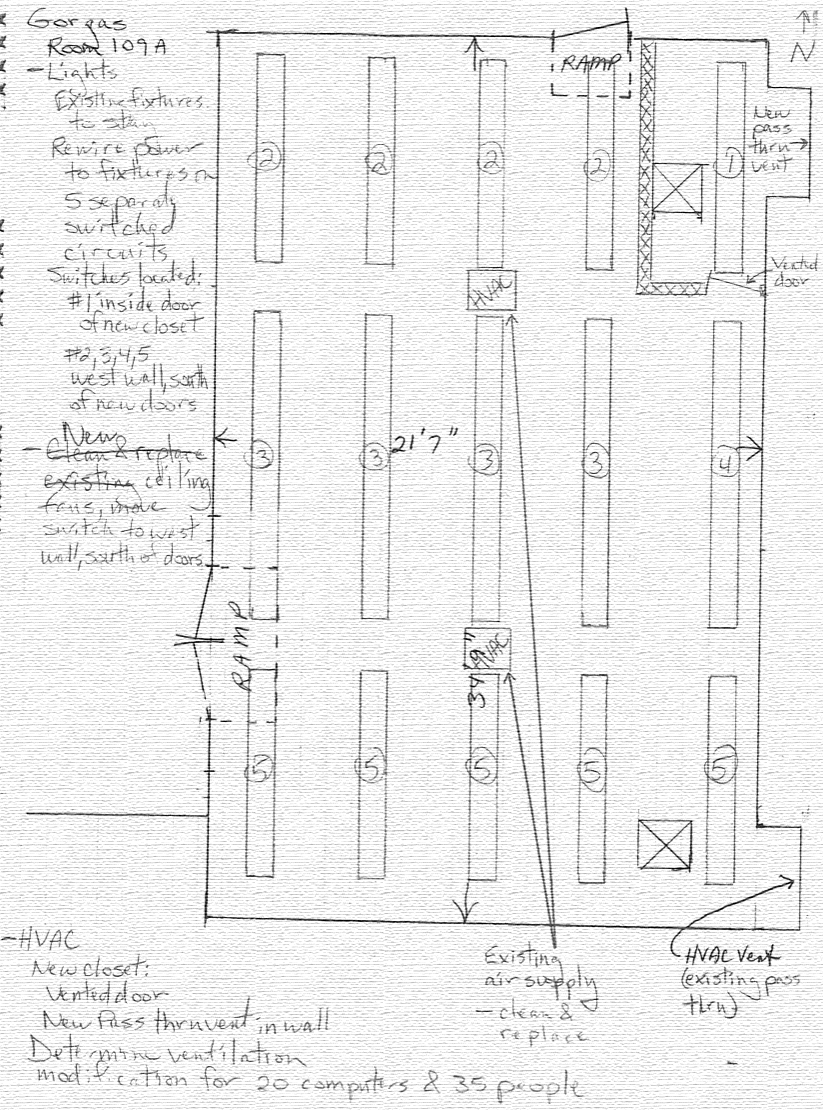 Gorgas
Room 109A
- Lights
Existing fixtures
to stay
Rewire power
to fixtures on
5 separatly
switched
circuits
Switches located:
#1 inside door
of new closet
#2,3,4,5
west wall, south
of new doors
New
- Clean & replace
existing ceiling
fans, move
switch to west
wall, south of doors
RAMP
N
New
pass
thru
vent
Vented
door
2 2 2 2 1
HVAC
3 3 3 3 4
21'7"
RAMP
HVAC
34'9"
5 5 5 5 5
Existing
air supply
- clean &
replace
HVAC Vent
(existing pass
thru)
- HVAC
New closet:
Vented door
New Pass thru vent in wall
Determine ventilation
modification for 20 computers & 35 people